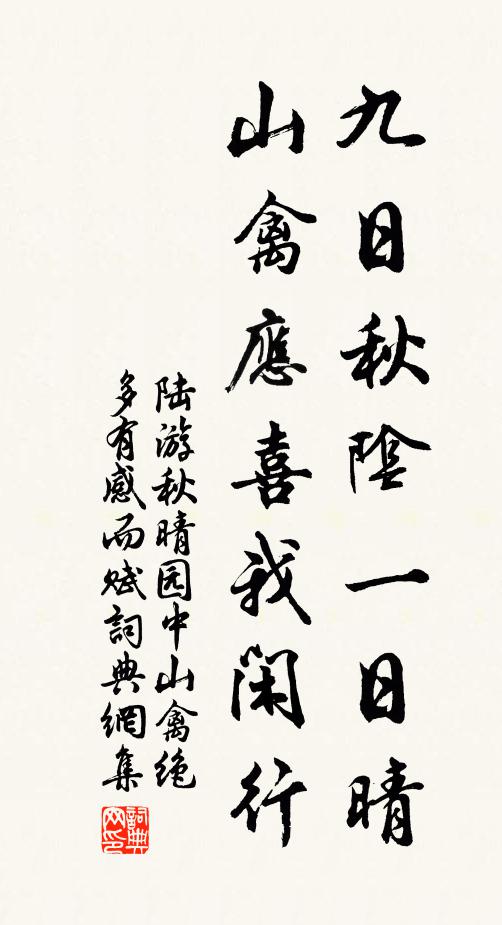 九日秋陰一日晴
山禽應喜我閑行
陆游秋晴园中山禽绝
多有感而赋詞典網集
詞典網印